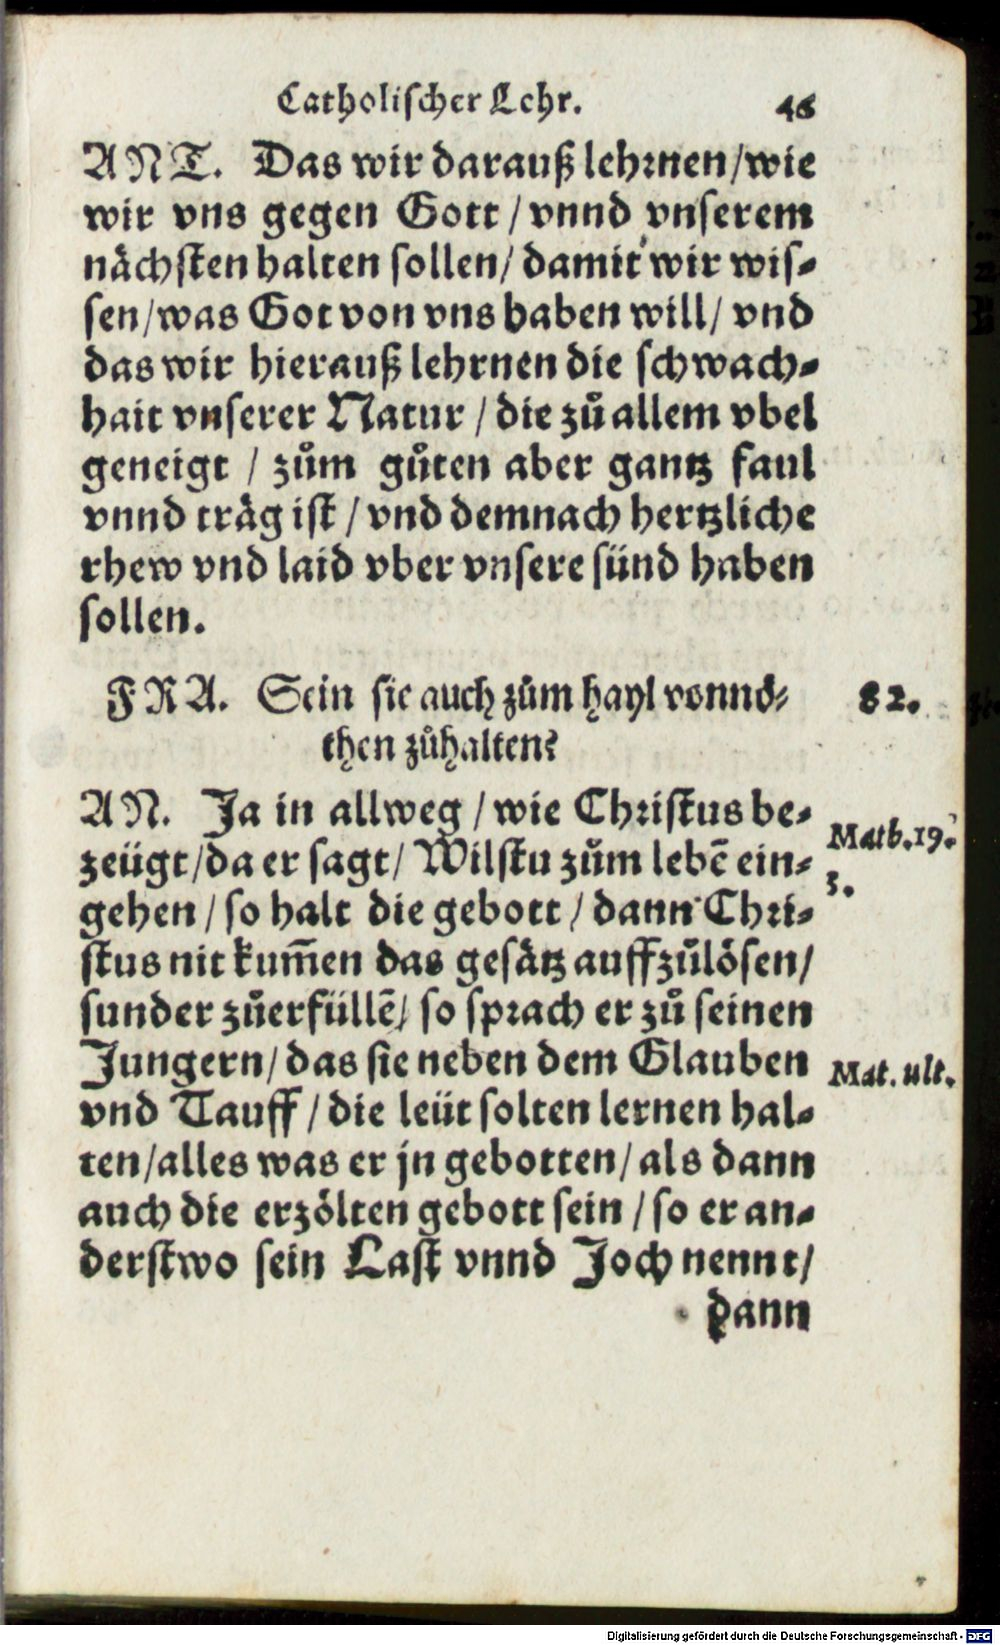 Catholischer Lehr. 46
ANT. Das wir darauß lehrnen/wie
wir vns gegen Gott / vnnd vnserem
nächsten halten sollen/ damit wir wis-
sen/was Got von vns haben will/ vnd
das wir hierauß lehrnen die schwach-
hait vnserer Natur / die zů allem vbel
geneigt / zům gůten aber gantz faul
vnnd träg ist / vnd demnach hertzliche
rhew vnd laid vber vnsere sünd haben
sollen.
FRA. Sein sie auch zům hayl vonnö-
then zůhalten?
82.
AN. Ja in allweg / wie Christus be-
zeügt/da er sagt/ Wilstu zům lebē ein-
gehen / so halt die gebott / dann Chri-
stus nit kum̄en das gesätz auffzůlösen/
sunder zůerfüllē/ so sprach er zů seinen
Jungern/ das sie neben dem Glauben
vnd Tauff / die leüt solten lernen hal-
ten/alles was er jn gebotten/ als dann
auch die erzölten gebott sein / so er an-
derstwo sein Last vnnd Joch nennt/
dann
Math.19.
5.
Mat. ult.
Digitalisierung gefördert durch die Deutsche Forschungsgemeinschaft - DFG